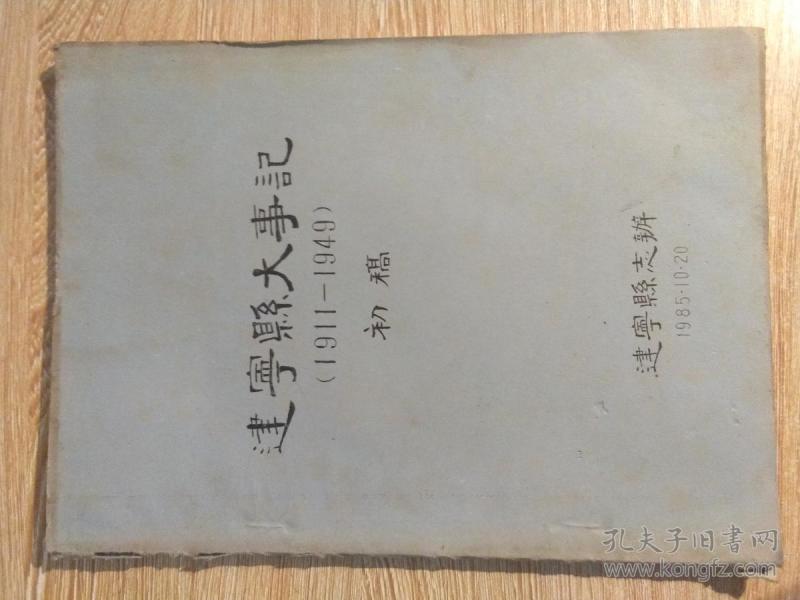 建寧縣大事記
(1911-1949)
初稿
建寧縣志辦
1985·10·20
孔夫子旧书网
www.kongfz.com